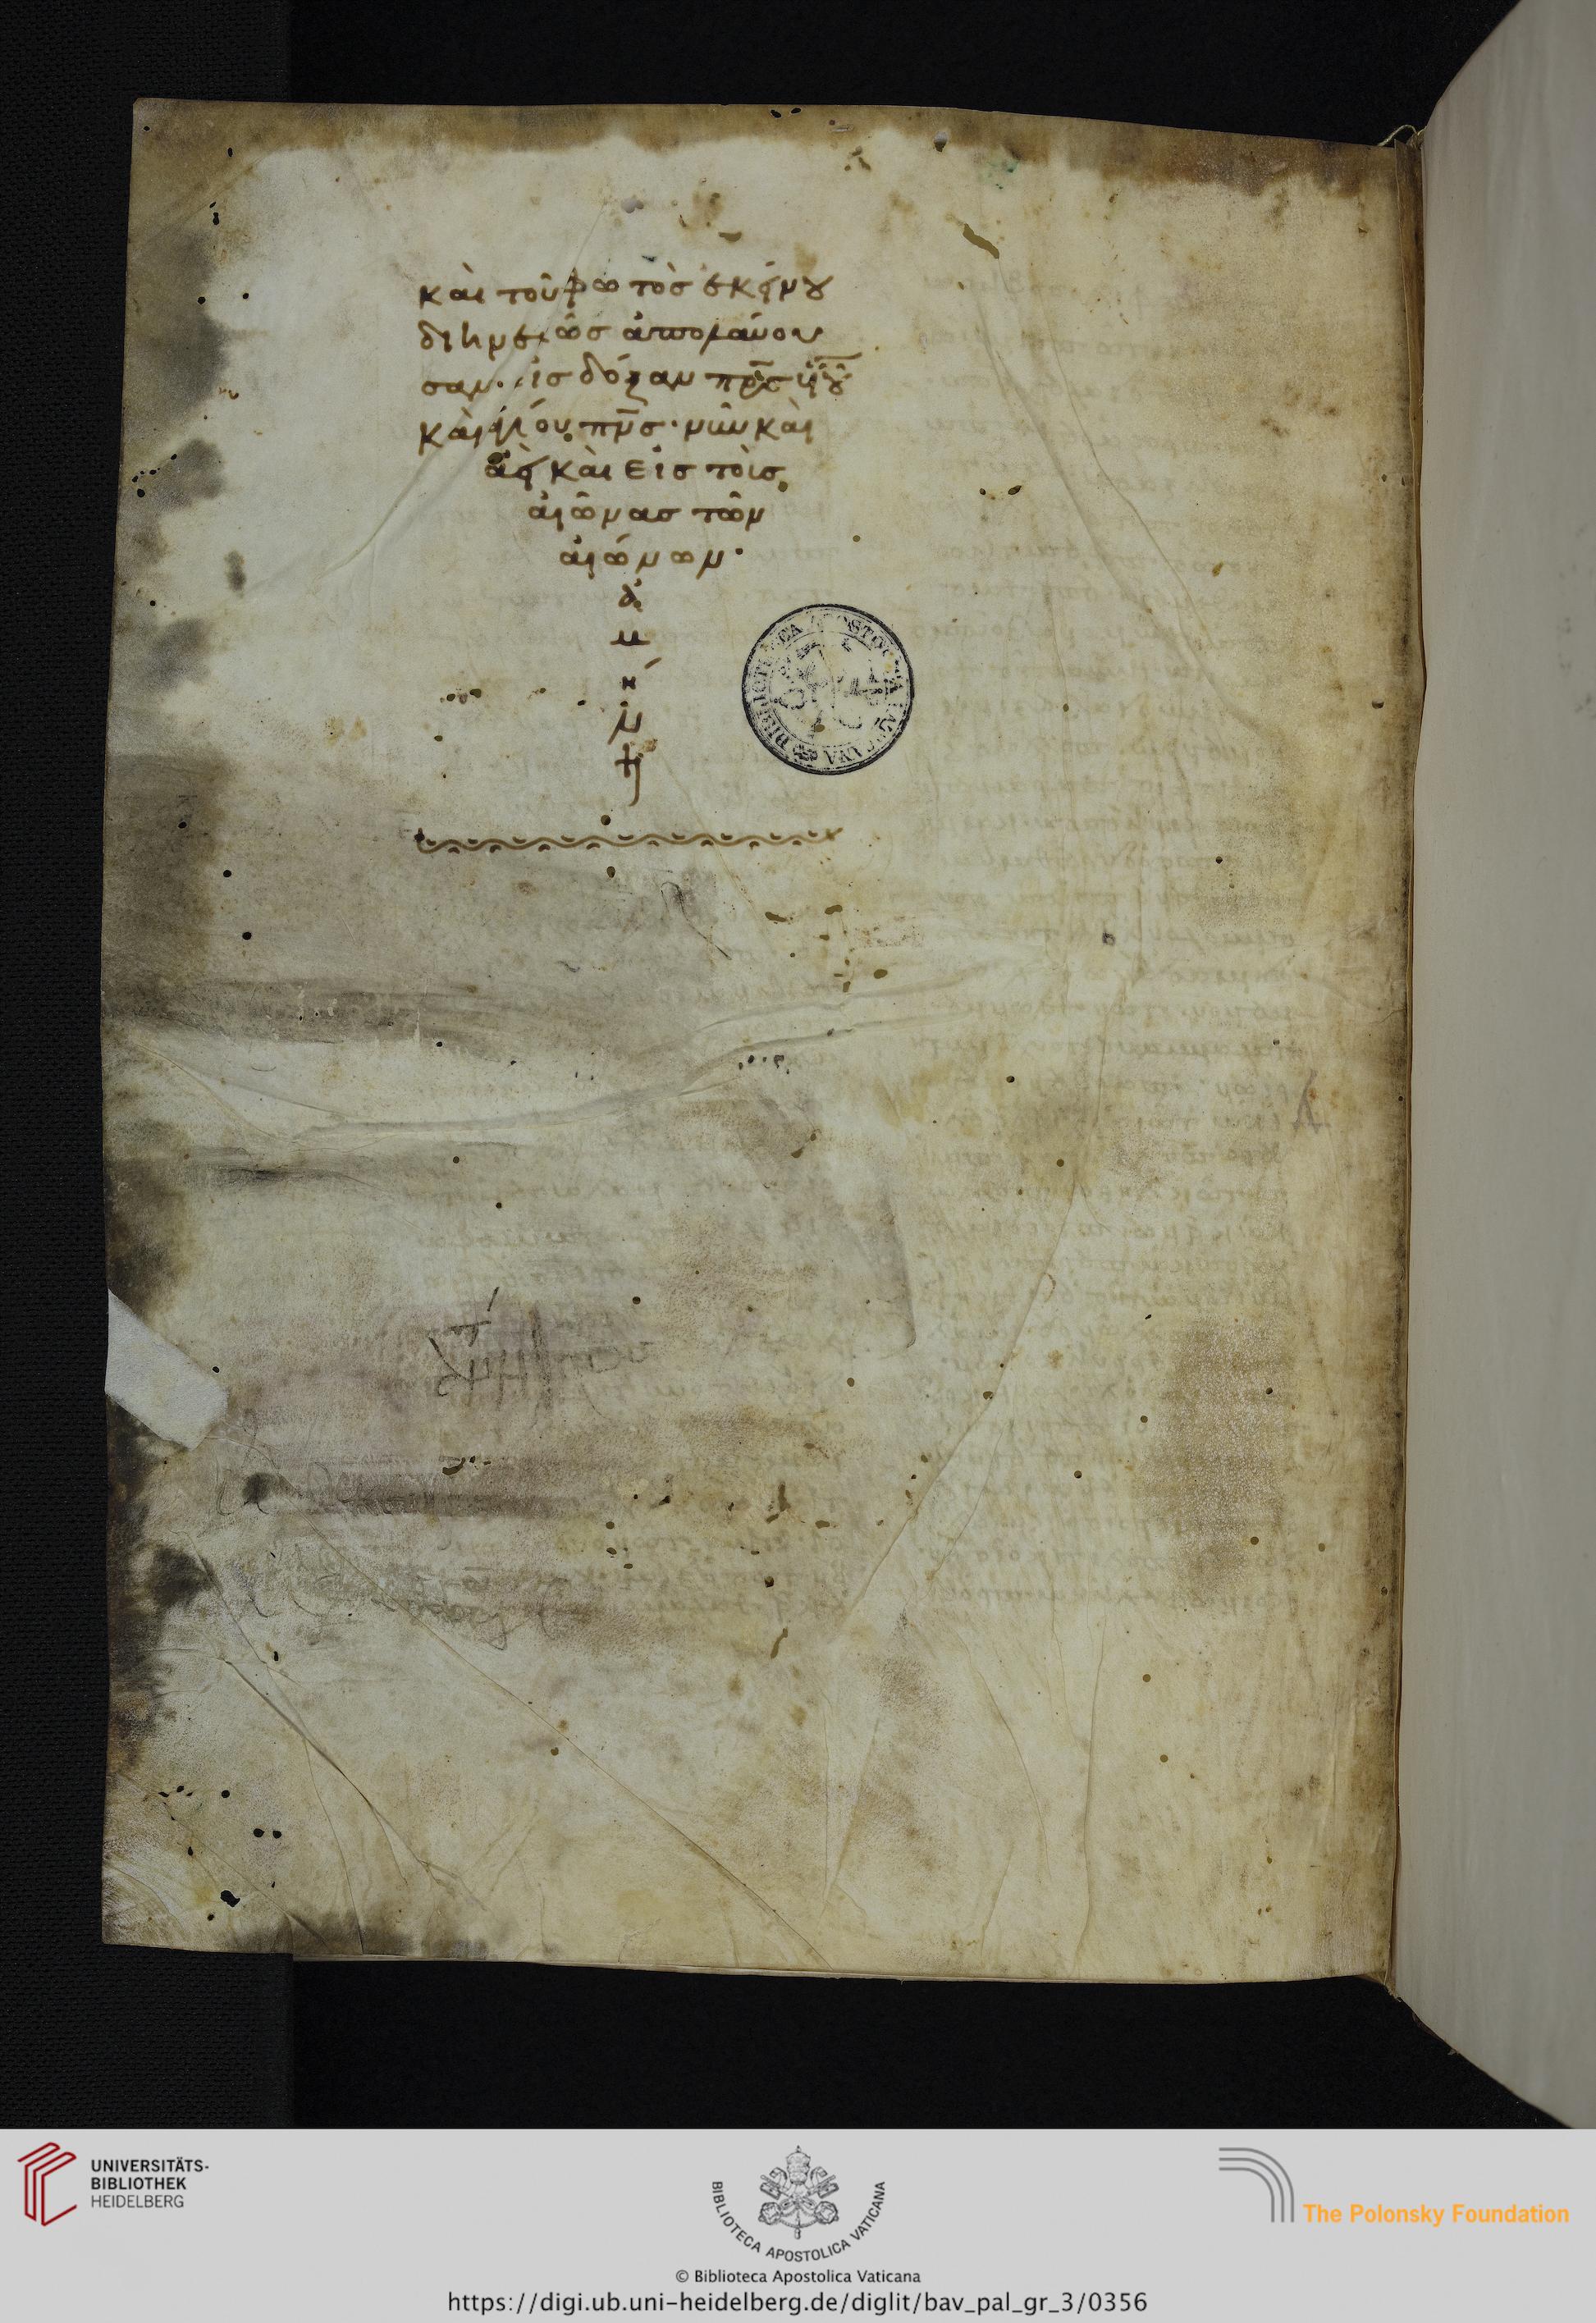 καὶ τοῦ φωτὸσ ἐκείνου
διηνεκῶσ ἀπολαύου
σαν· εἰσ δόξαν πρ̅σ υἱοῦ
καὶ ἁγίου πν̅σ· νῦν καὶ
ἀεὶ καὶ εἰσ τοὺσ
αἰῶνασ τῶν
αἰώνων·
ἀ
μ
ή
ν
BIBLIOTECA APOSTOLICA VATICANA
UNIVERSITÄTS-
BIBLIOTHEK
HEIDELBERG
BIBLIOTECA APOSTOLICA VATICANA
The Polonsky Foundation
© Biblioteca Apostolica Vaticana
https://digi.ub.uni-heidelberg.de/diglit/bav_pal_gr_3/0356